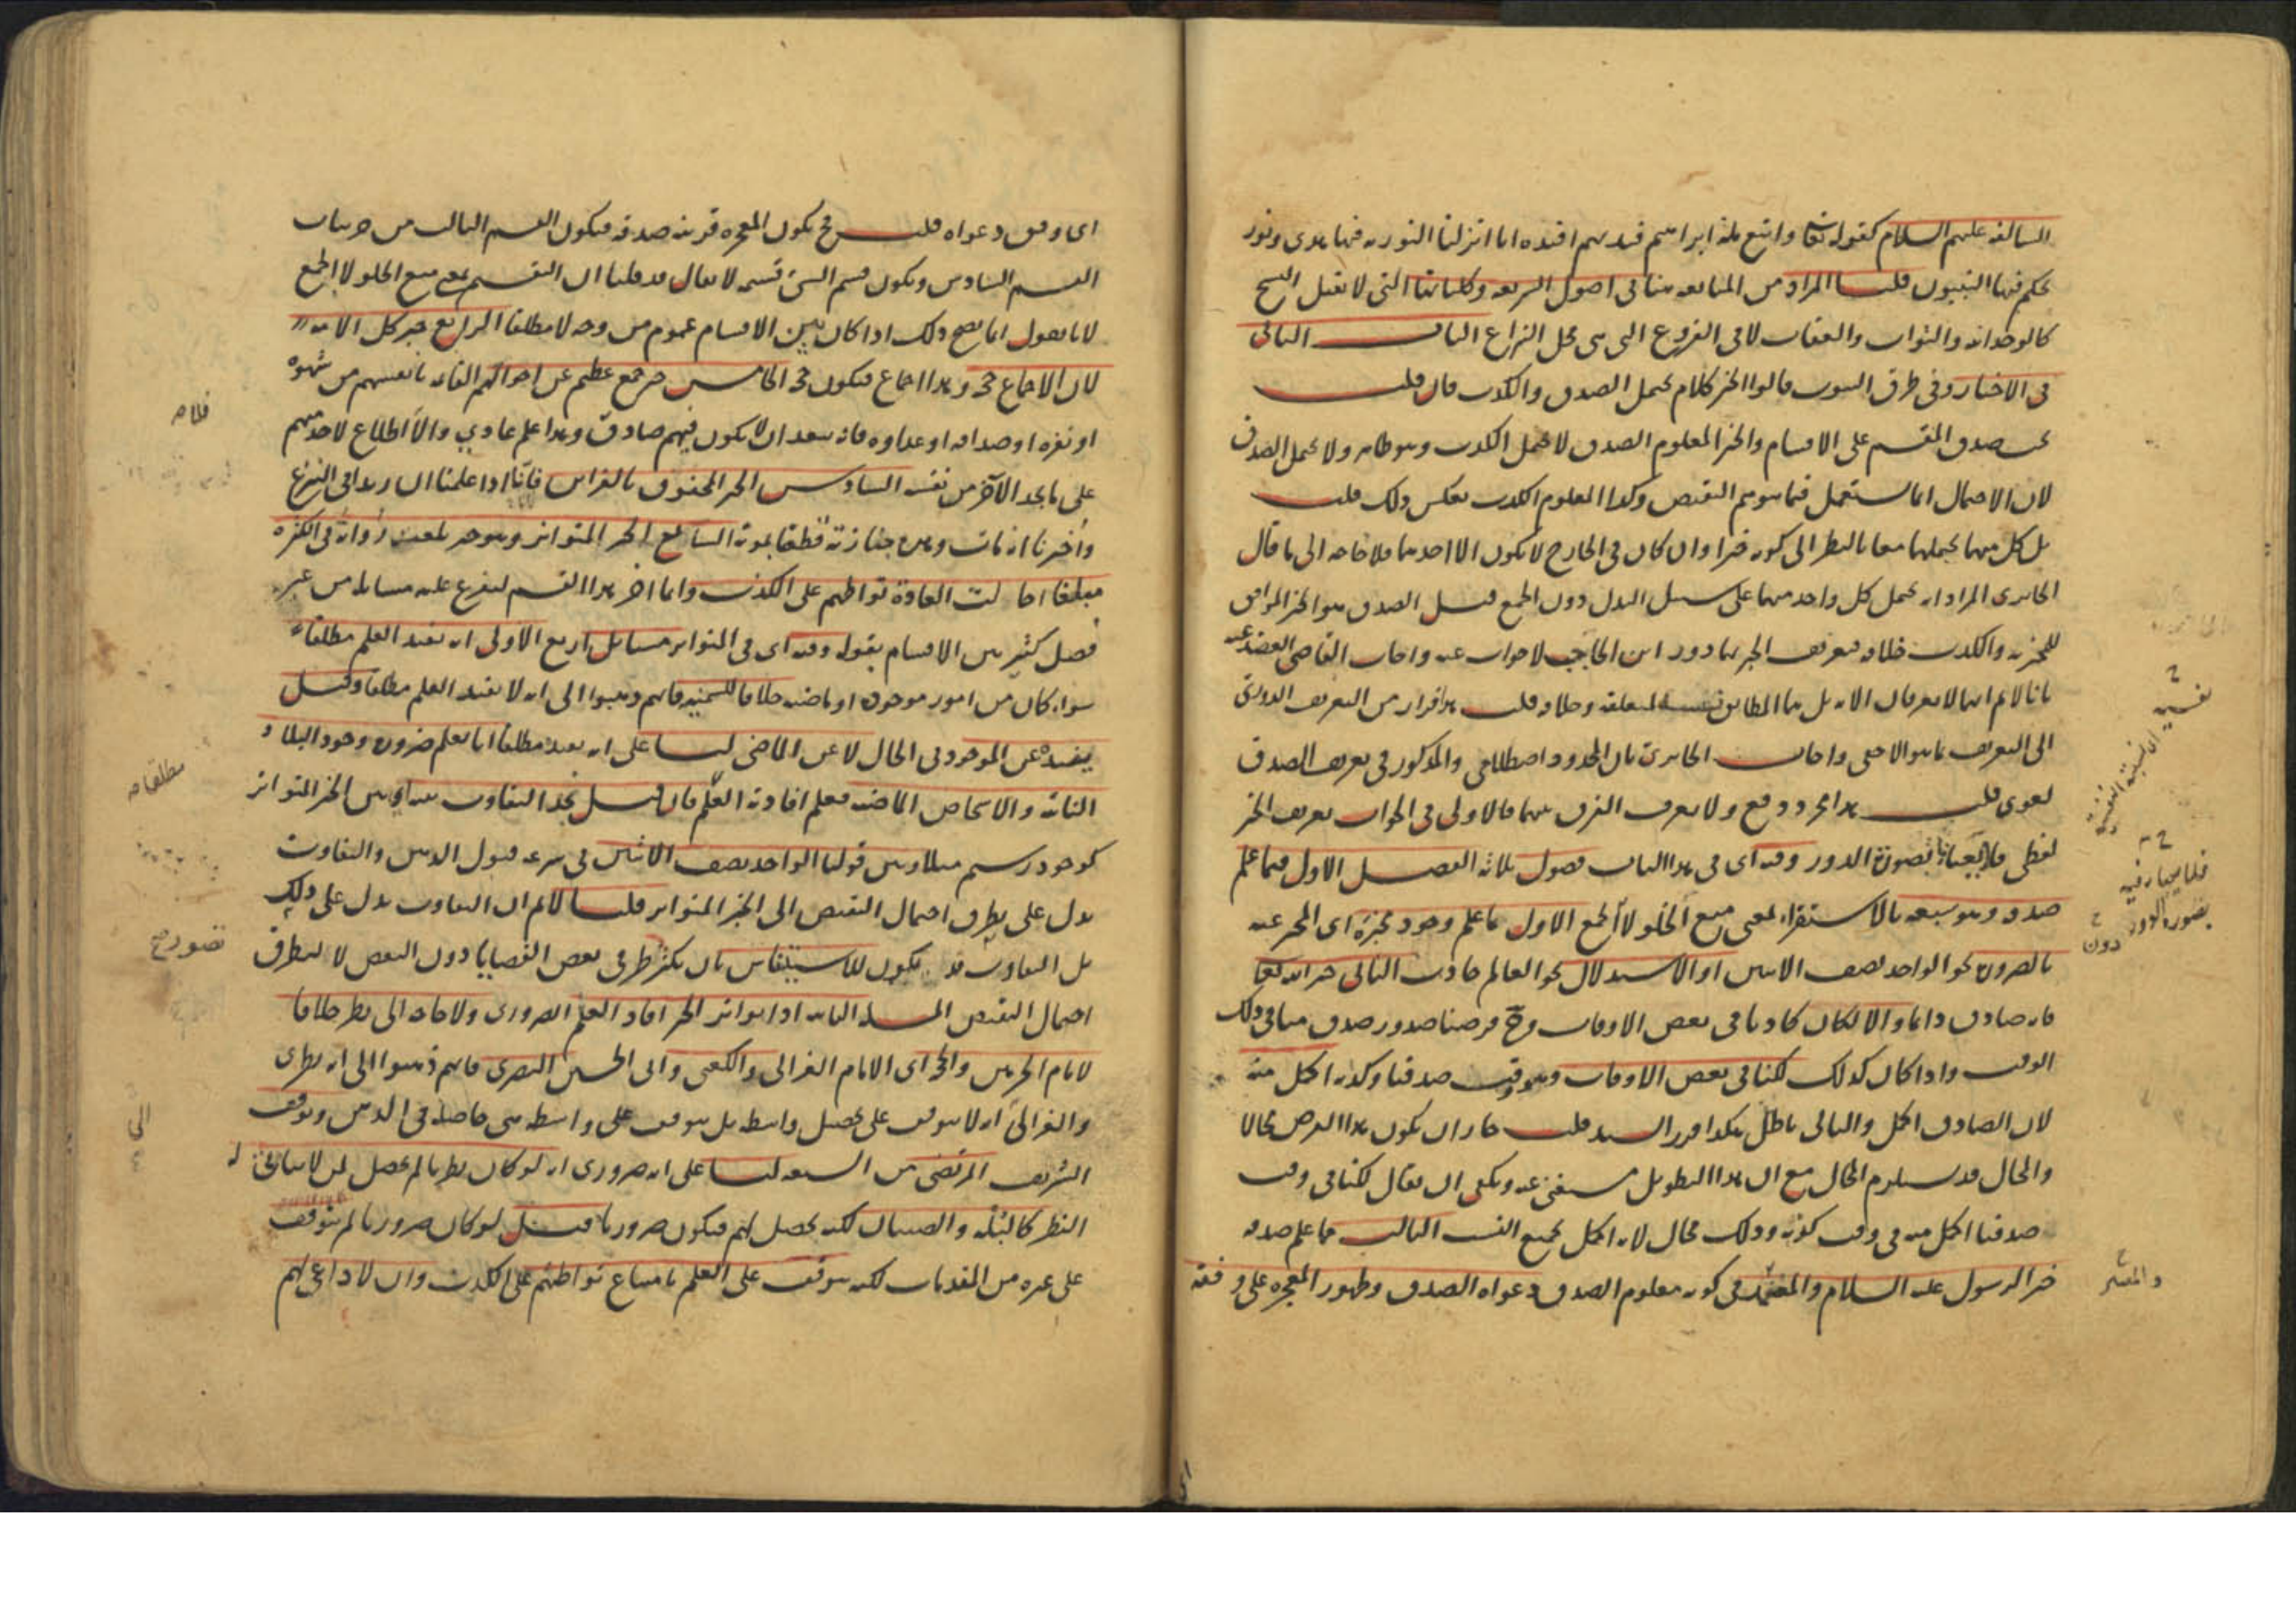 السالفة عليهم السلام كقوله تعالى واتبع ملة ابراهيم فبهديهم اقتده انا انزلنا التورية فيها هدى ونور
يحكم فيها النبيون قلنا المراد من المتابعة هنا في اصول الشريعة وكلياتها التي لا تقبل النسخ
كالوحدانية والثواب والعقاب لا في الفروع التي هي محل النزاع الباب الثاني
في الاخبار وفي طرق الثبوت قالوا الخبر كلام يحتمل الصدق والكذب فان قلت
يجب صدق المقسم على الاقسام والخبر المعلوم الصدق لا يحتمل الكذب وهو ظاهر ولا يحتمل الصدق
لان الاحتمال انما يستعمل فيما يوهم النقيض وكذا المعلوم الكذب بعكس ذلك قلت
بل كل منهما يحتملهما معا بالنظر الى كونه خبرا وان كان في الخارج لا يكون الا احدهما فلا حاجة الى ما قال
المراد انه يحتمل كل واحد منهما على سبيل البدل دون الجمع قيل الصدق هو الخبر الموافق
للمخبر به والكذب خلافه فتعريف الخبر بهما دور ابن الحاجب لا جواب عنه واجاب القاضي العضد عنه
بانا لانم انهما لا يعرفان الا به بل هما المطابق لمتعلقه وخلافه قلت هذا فرار من التعريف الدوري
الى التعريف بما هو الاخفى واجاب بان المحدود اصطلاحي والمذكور في تعريف الصدق
لغوي قلت هذا مجرد دفع ولا يعرف الفرق بينهما فالاولى في الجواب تعريف الخبر
لفظي فلا الدور وفيه اي في هذا الباب فصول ثلاثة الفصل الاول فيما علم
صدقه وهو سبعة بالاستقراء بمعنى منع الخلو لا الجمع الاول ما علم وجود مخبره اي المخبر عنه
بالضرورة نحو الواحد نصف الاثنين او الاستدلال نحو العالم حادث الثاني خبر الله تعالى
فانه صادق دائما والا لكان كاذبا في بعض الاوقات وح فرضنا صدور صدق منا في ذلك
الوقت واذا كان كذلك لكنا في بعض الاوقات وهو وقت صدقنا وكذبه اكمل منه
لان الصادق اكمل والتالي باطل هكذا قرر السيد قلت جاز ان يكون هذا الفرض محالا
والمحال قد يستلزم المحال مع ان هذا التطويل مستغنى عنه ويكفي ان يقال لكنا في وقت
صدقنا اكمل منه في وقت كذبه وذلك محال لانه اكمل بجميع النسب الثالث مما علم صدقه
خبر الرسول عليه السلام والمعتمد في كونه معلوم الصدق دعواه الصدق وظهور المعجزة على وفقه
اي وفق دعواه قلت ح يكون المعجزة قرينة صدقه فيكون القسم الثالث من جزئيات
القسم السادس ويكون قسم الشئ قسيمه لا يقال قد قلنا ان التقسيم بمعنى منع الخلو لا الجمع
لانا نقول انما يصح ذلك اذا كان بين الاقسام عموم من وجه لا مطلقا الرابع خبر كل الامة
لان الاجماع حجة وهذا اجماع فيكون حجة الخامس خبر جمع عظيم عن احوالهم القائمة بانفسهم من شهوة
او نفرة او صداقة او عداوة فانه يبعد ان لا يكون فيهم صادق وهذا علم عادي والا اطلاع لاحد منهم
على ما يجد الآخر من نفسه السادس الخبر المحفوف بالقرائن فانا اذا علمنا ان زيدا في النزع
واخبرنا انه مات جنازته قطعنا بموته السابع الخبر المتواتر وهو خبر بلغت رواته في الكثرة
مبلغا احالت العادة تواطئهم على الكذب وانما اخر هذا القسم ليفرع عليه مسائله من غير
فصل كثير بين الاقسام بقوله وفيه اي في المتواتر مسائل اربع الاولى انه يفيد العلم مطلقا
سواء كان من امور موجودة او ماضية خلافا للسمنية فانهم ذهبوا الى انه لا يفيد العلم مطلقا وقيل
يفيده عن الموجود في الحال لا عن الماضي لنا على انه يفيد مطلقا انا نعلم ضرورة وجود البلاد
النائية والاشخاص الماضية فعلم افادته العلم فان قيل نجد التفاوت بينه اي بين الخبر المتواتر
كوجود رستم مثلا وبين قولنا الواحد نصف الاثنين في سرعة قبول الذهن والتفاوت
يدل على تطرق احتمال النقيض الى الخبر المتواتر قلنا لانم ان التفاوت يدل على ذلك
بل التفاوت قد يكون للاستيناس بان يكثر في بعض القضايا دون البعض لا لتطرق
احتمال النقيض المسئلة الثانية اذا تواتر الخبر افاد العلم الضروري ولا حاجة الى نظر خلافا
لامام الحرمين والحجة اي الامام الغزالي والكعبي وابي الحسين البصري فانهم ذهبوا الى انه نظري
والغزالي انه لا يتوقف على تحصيل واسطة بل يتوقف على واسطة هي حاصلة في الذهن وتوقف
الشريف المرتضى من الشيعة لنا على انه ضروري انه لو كان نظريا لم يحصل لمن لا يتأتى له
النظر كالبله والصبيان لكنه يحصل لهم فيكون ضروريا قيل لو كان ضروريا لم يتوقف
على غيره من المقدمات لكنه يتوقف على العلم بامتناع تواطئهم على الكذب وان لا داعي لهم